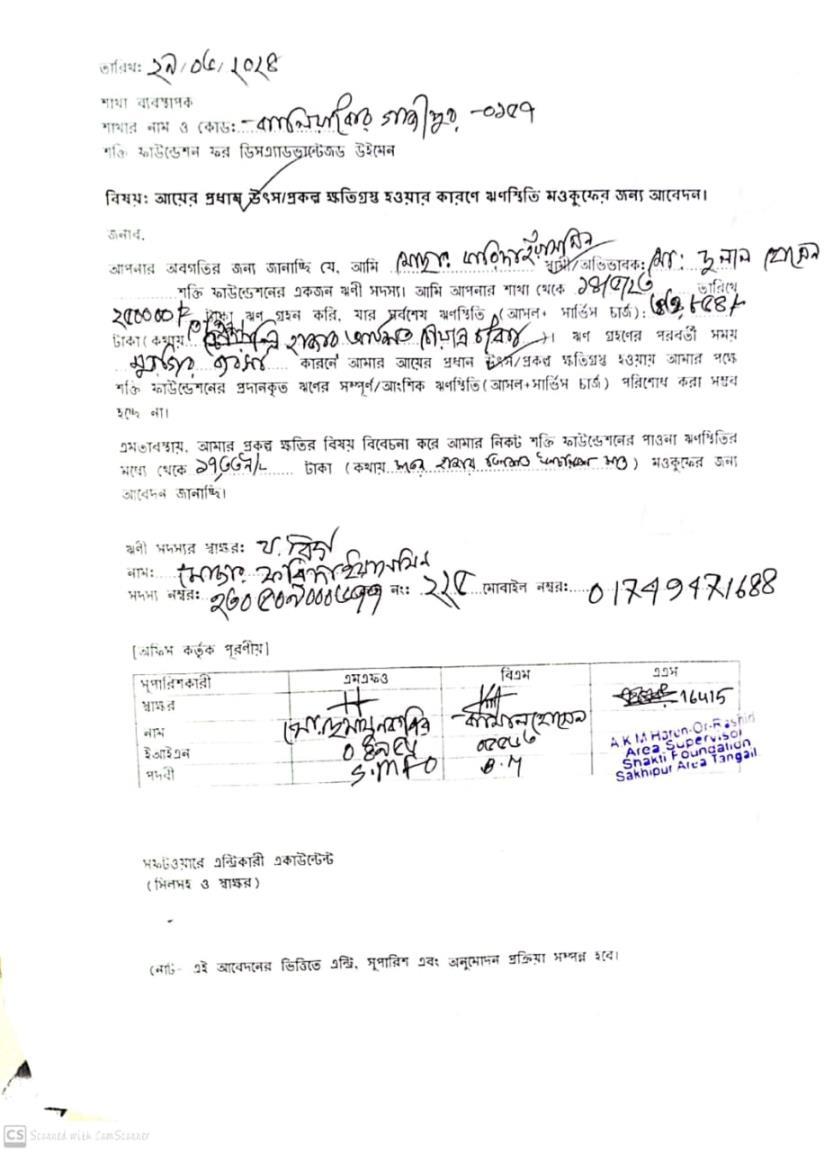 তারিখ: ২৯/০৫/২০২৪
শাখা ব্যবস্থাপক
শাখার নাম ও কোড: কালিয়াকৈর গাজীপুর -০১৫৭
শক্তি ফাউন্ডেশন ফর ডিসএ্যাডভান্টেজড উইমেন
বিষয়: আয়ের প্রধান উৎস/প্রকল্প ক্ষতিগ্রস্থ হওয়ার কারণে ঋণস্থিতি মওকুফের জন্য আবেদন।
জনাব,
আপনার অবগতির জন্য জানাচ্ছি যে, আমি মোছাঃ ফরিদা ইয়াসমিন স্বামী/অভিভাবক: মো: দুলাল হোসেন
শক্তি ফাউন্ডেশনের একজন ঋণী সদস্য। আমি আপনার শাখা থেকে তারিখে
২৫০০০০/- টাকা ঋণ গ্রহন করি, যার সর্বশেষ ঋণস্থিতি (আসল+ সার্ভিস চার্জ):
টাকা (কথায় হাজার )। ঋণ গ্রহণের পরবর্তী সময়
মুরগির ব্যবসা কারনে আমার আয়ের প্রধান উৎস/প্রকল্প ক্ষতিগ্রস্থ হওয়ায় আমার পক্ষে
শক্তি ফাউন্ডেশনের প্রদানকৃত ঋণের সম্পূর্ণ/আংশিক ঋণস্থিতি (আসল+সার্ভিস চার্জ) পরিশোধ করা সম্ভব
হচ্ছে না।
এমতাবস্থায়, আমার প্রকল্প ক্ষতির বিষয় বিবেচনা করে আমার নিকট শক্তি ফাউন্ডেশনের পাওনা ঋণস্থিতির
মধ্যে থেকে টাকা (কথায় হাজার ) মওকুফের জন্য
আবেদন জানাচ্ছি।
ঋণী সদস্যর স্বাক্ষর:
নাম: মোছাঃ ফরিদা ইয়াসমিন
সদস্য নম্বর: নং: ২২৫ মোবাইল নম্বর: 01749471688
[অফিস কর্তৃক পূরণীয়]
সুপারিশকারী এমএফও বিএম এএম
স্বাক্ষর 16415
নাম মো: হুমায়ুন কবির কামাল হোসেন A K M Harun-Or-Rashid
ইআইএন Area Supervisor
Shakti Foundation
পদবী S.MFO B.M Sakhipur Area Tangail
সফটওয়ারে এন্ট্রিকারী একাউন্টেন্ট
(সিলসহ ও স্বাক্ষর)
নোট- এই আবেদনের ভিত্তিতে এন্ট্রি, সুপারিশ এবং অনুমোদন প্রক্রিয়া সম্পন্ন হবে।
CS Scanned with CamScanner